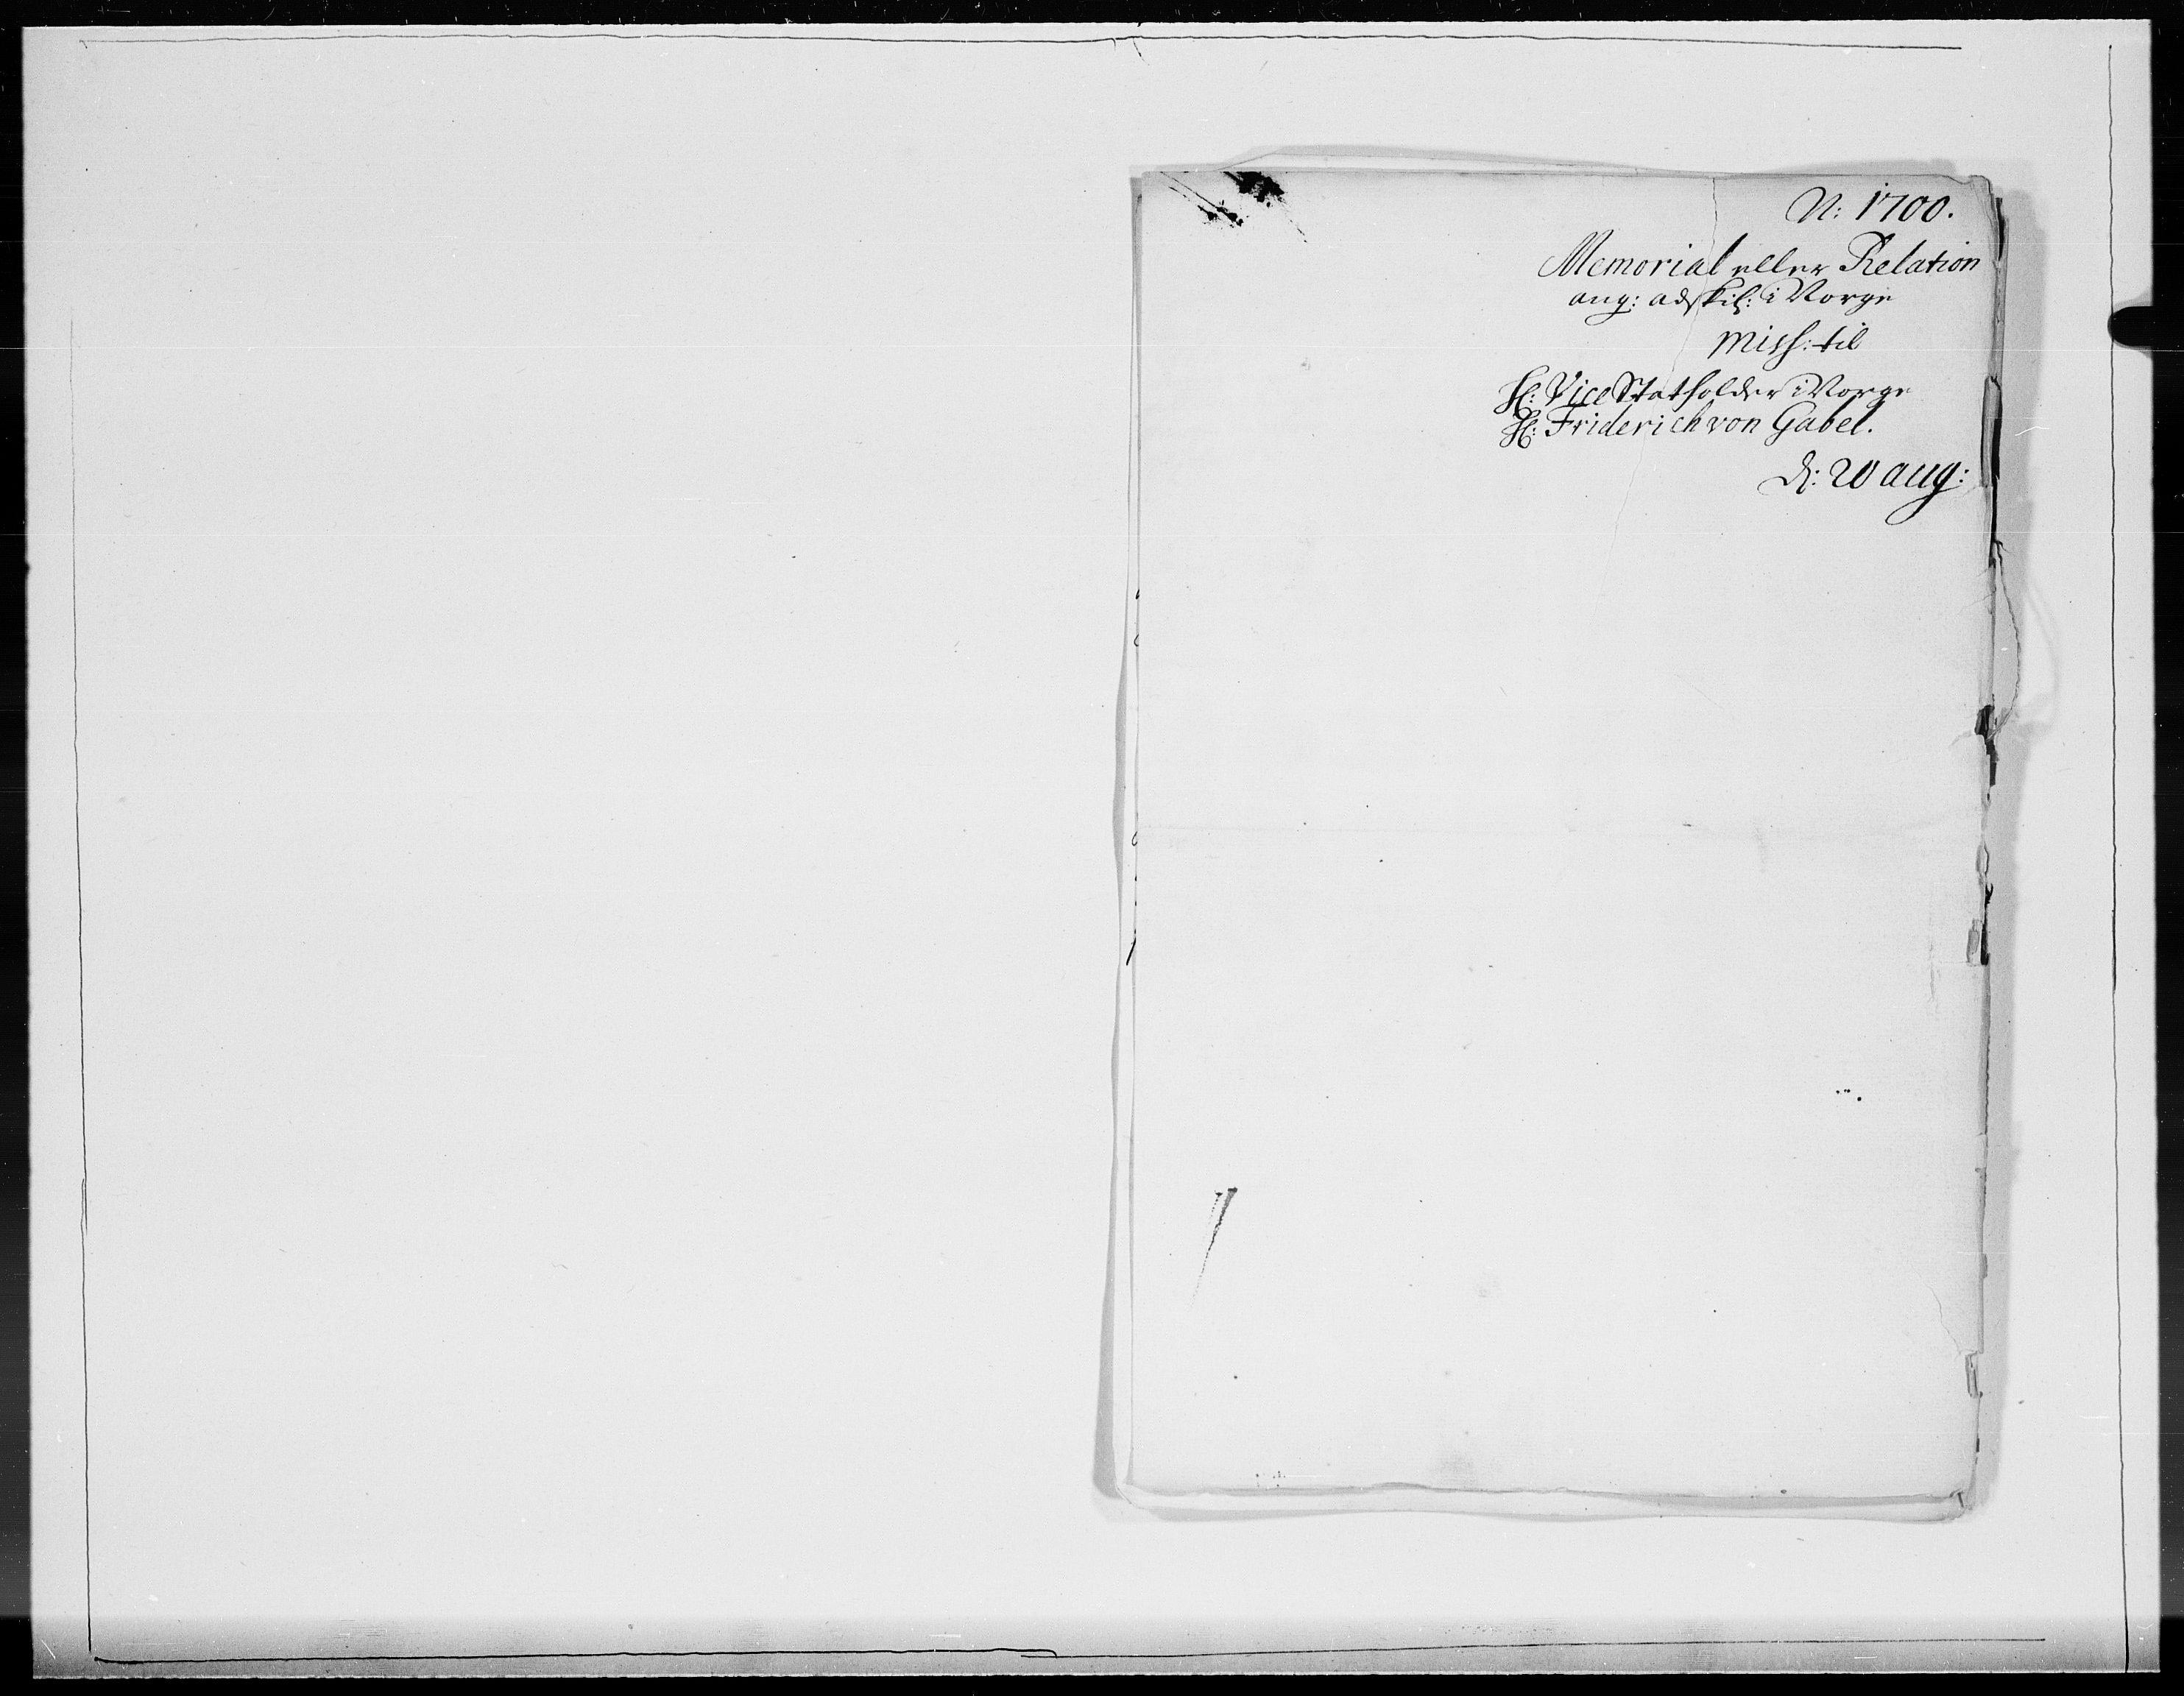 N: 1700.
Memorial eller Relation
ang: adskil: i Norge
Miss: til
H: Vice Statholder i Norge
H: Friderich von Gabel.
d: 20 aug: